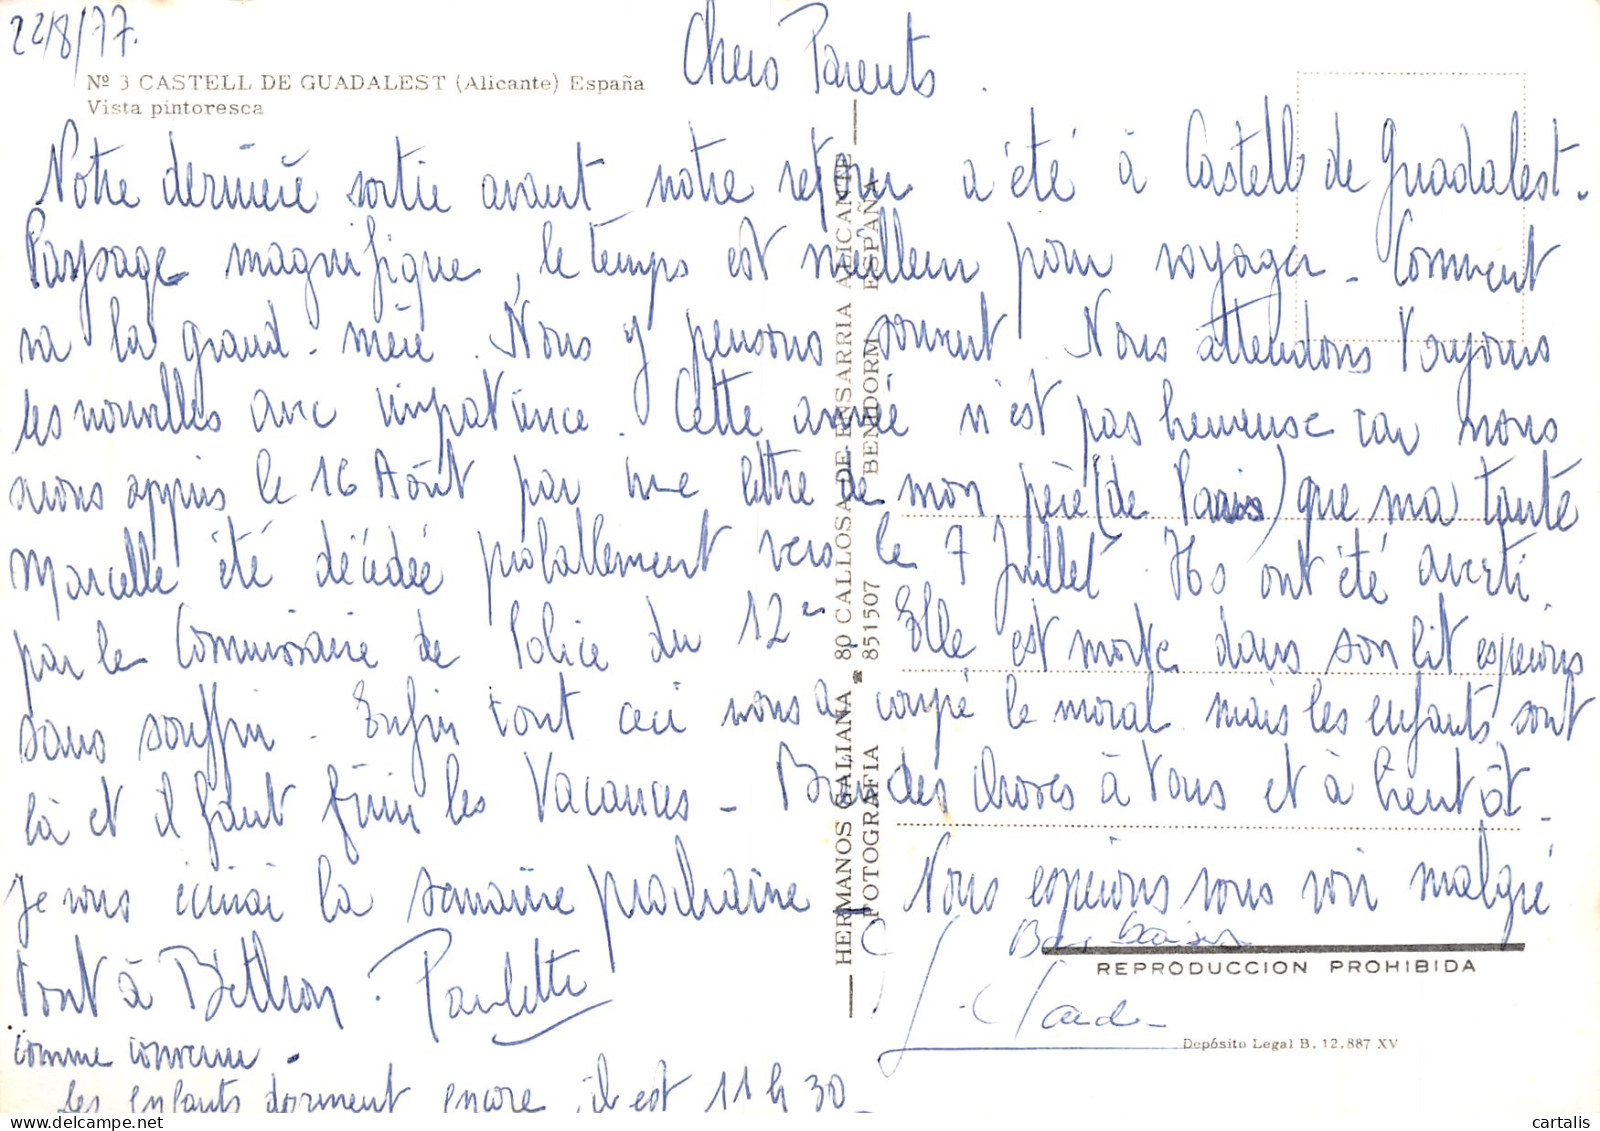 22/8/77.
Nº 3 CASTELL DE GUADALEST (Alicante) España
Vista pintoresca
Chers Parents.
Notre dernière sortie avant notre retour a été à Castell de Guadalest.
Paysage magnifique, le temps est meilleur pour voyager. Comment
va la grand-mère. Nous y pensons souvent. Nous attendons toujours
les nouvelles avec impatience. Cette année n'est pas heureuse car nous
avons appris le 16 Août par une lettre de mon père (de Paris) que ma tante
Marcelle été décédée probablement vers le 7 Juillet. Ils ont été averti
par le Commissaire de Police du 12e. Elle est morte dans son lit espérons
sans souffrir. Enfin tout ceci nous a coupé le moral mais les enfants sont
là et il faut finir les Vacances - Bien des choses à tous et à bientôt.
Je vous écrirai la semaine prochaine - Nous espérons vous voir malgré
tout à Béthon. Paulette
comme convenu.
Les enfants dorment encore, il est 11 h 30
Bons baisers
Claude
HERMANOS GALIANA 80 CALLOSA DE ENSARRIA ALICANTE
FOTOGRAFIA ☎ 851507 BENIDORM ESPAÑA
REPRODUCCION PROHIBIDA
Depósito Legal B. 12.887 XV
cartalis